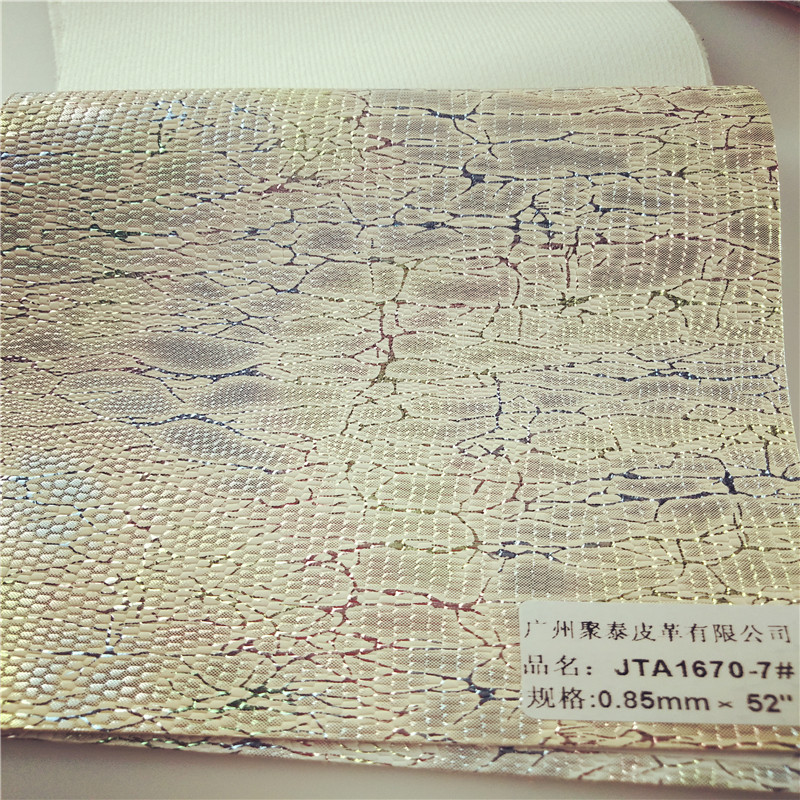 广州聚泰皮革有限公司
品名：JTA1670-7#
规格:0.85mm × 52"